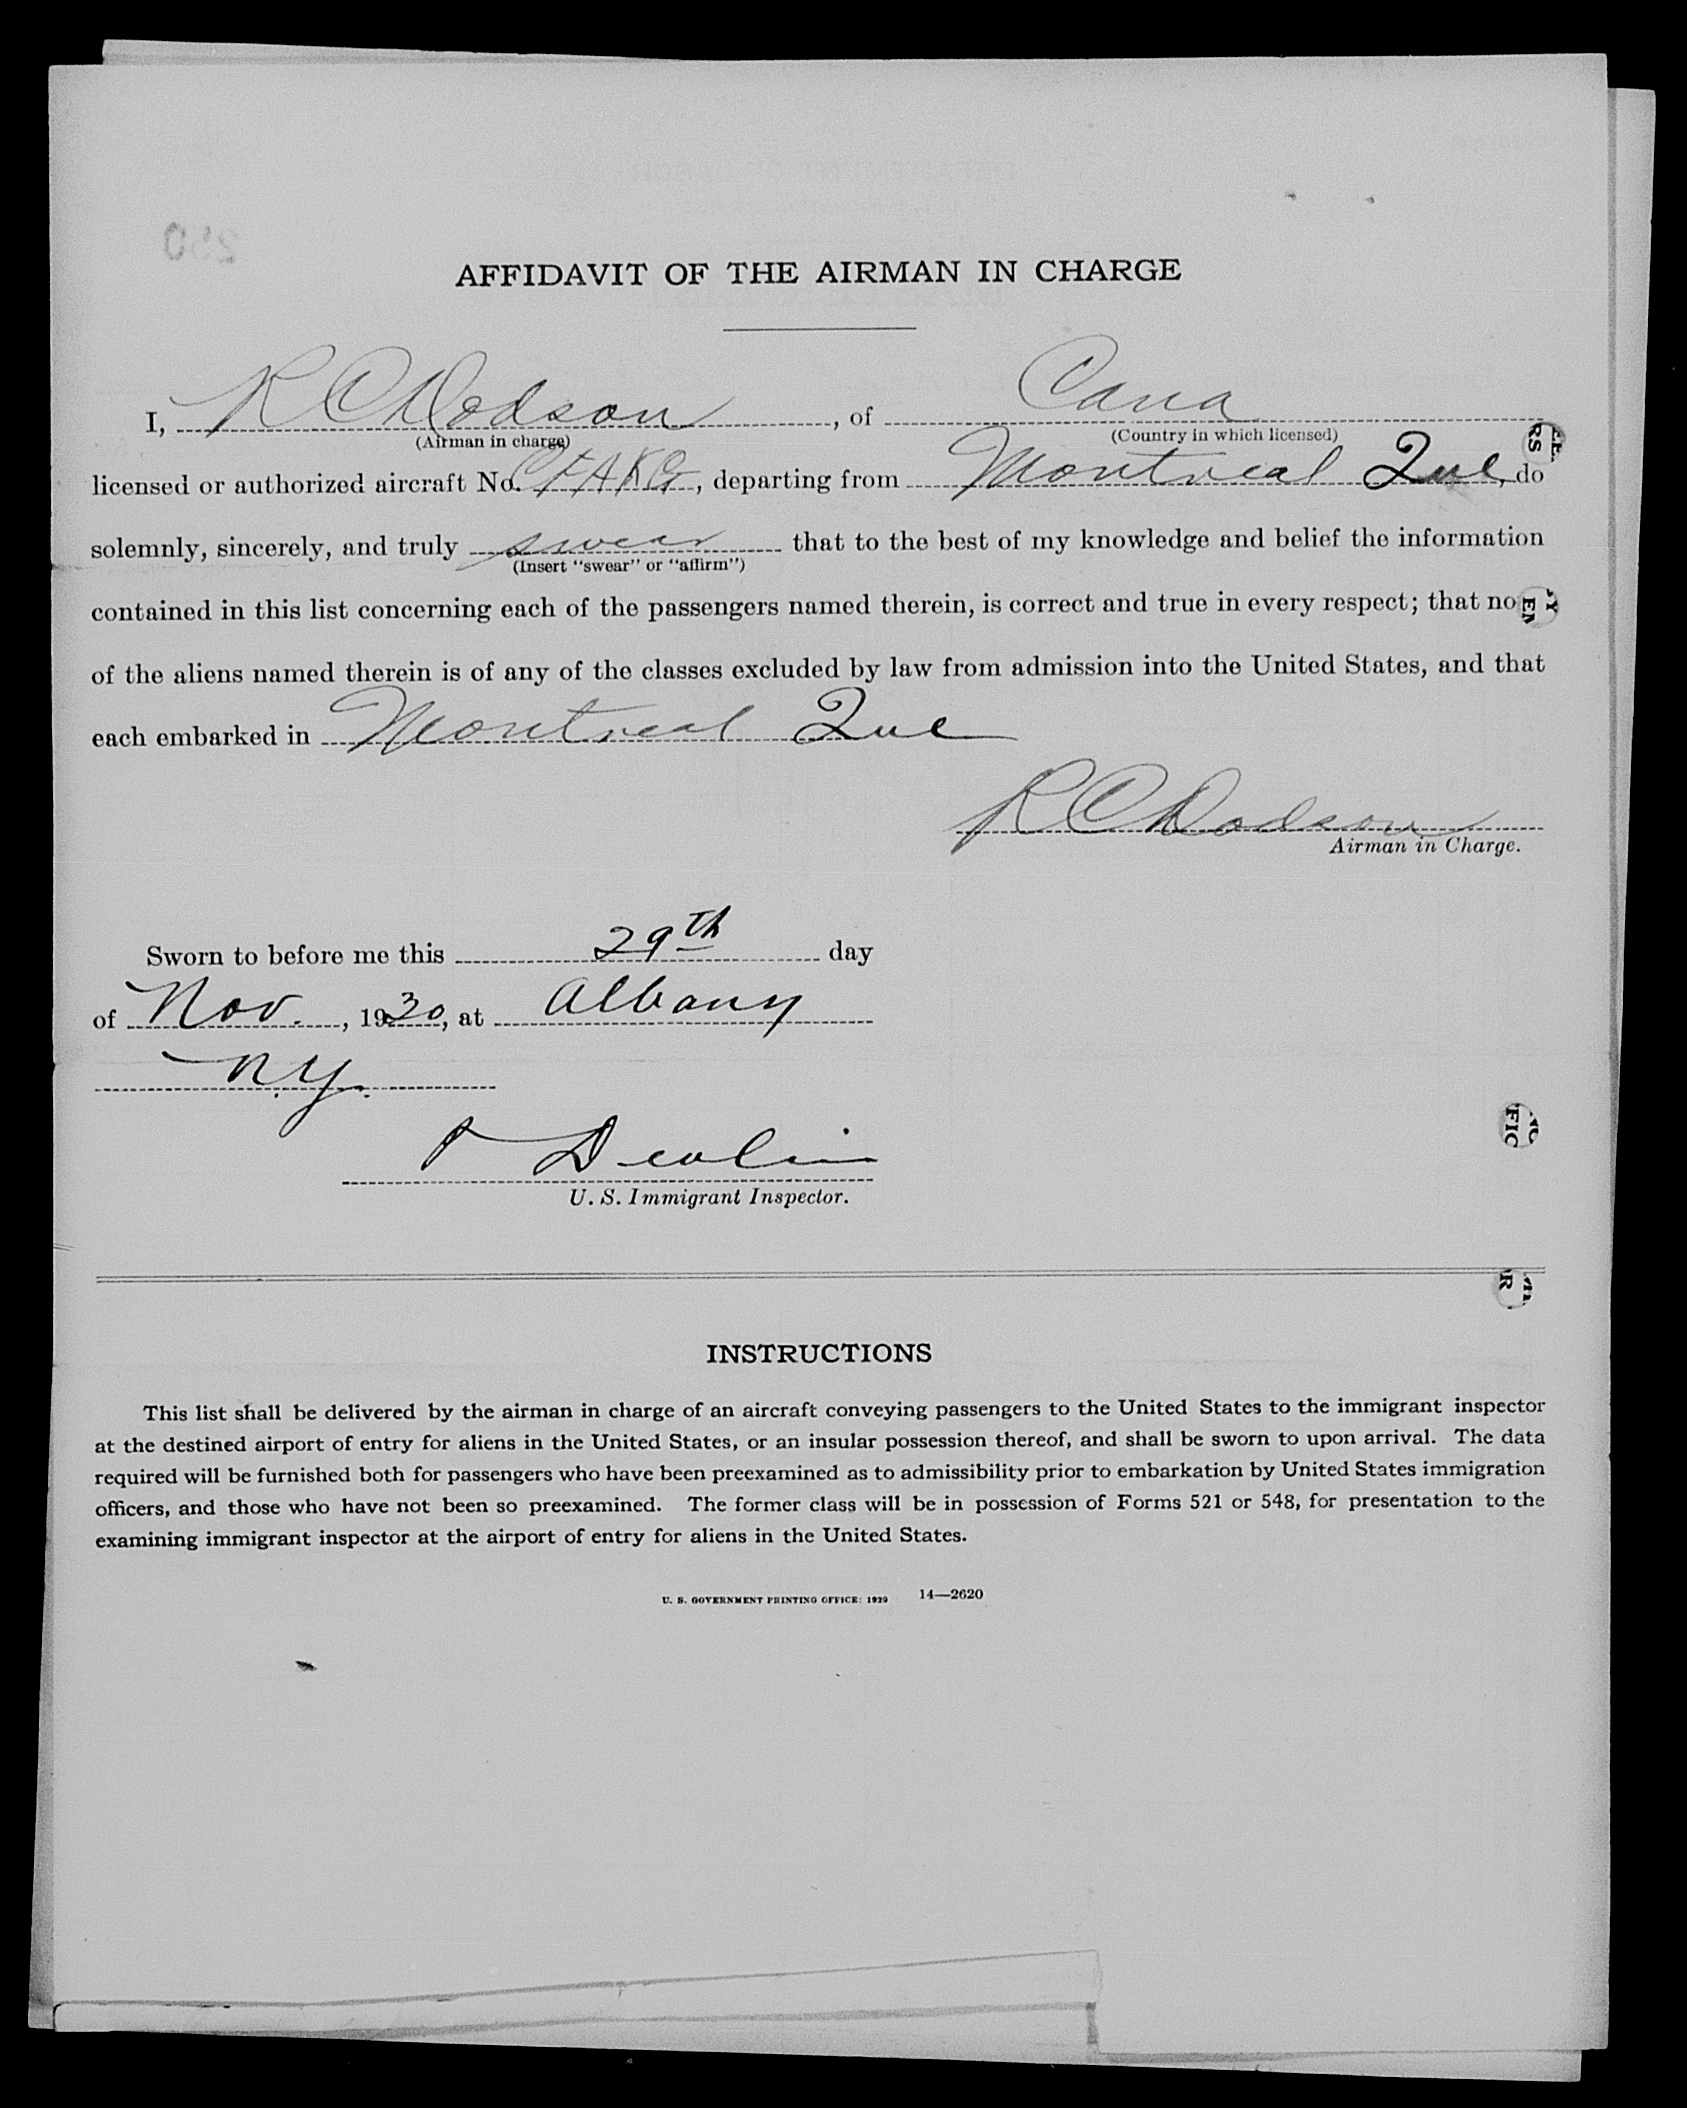 AFFIDAVIT OF THE AIRMAN IN CHARGE
I, R C Dodson, of Cana
(Airman in charge) (Country in which licensed)
licensed or authorized aircraft No. CFAKG, departing from Montreal Que, do
solemnly, sincerely, and truly swear that to the best of my knowledge and belief the information
(Insert "swear" or "affirm")
contained in this list concerning each of the passengers named therein, is correct and true in every respect; that no
of the aliens named therein is of any of the classes excluded by law from admission into the United States, and that
each embarked in Montreal Que
R C Dodson
Airman in Charge.
Sworn to before me this 29th day
of Nov., 1930, at Albany
N.Y.
P Devlin
U. S. Immigrant Inspector.
INSTRUCTIONS
This list shall be delivered by the airman in charge of an aircraft conveying passengers to the United States to the immigrant inspector
at the destined airport of entry for aliens in the United States, or an insular possession thereof, and shall be sworn to upon arrival. The data
required will be furnished both for passengers who have been preexamined as to admissibility prior to embarkation by United States immigration
officers, and those who have not been so preexamined. The former class will be in possession of Forms 521 or 548, for presentation to the
examining immigrant inspector at the airport of entry for aliens in the United States.
U. S. GOVERNMENT PRINTING OFFICE: 1929 14—2620